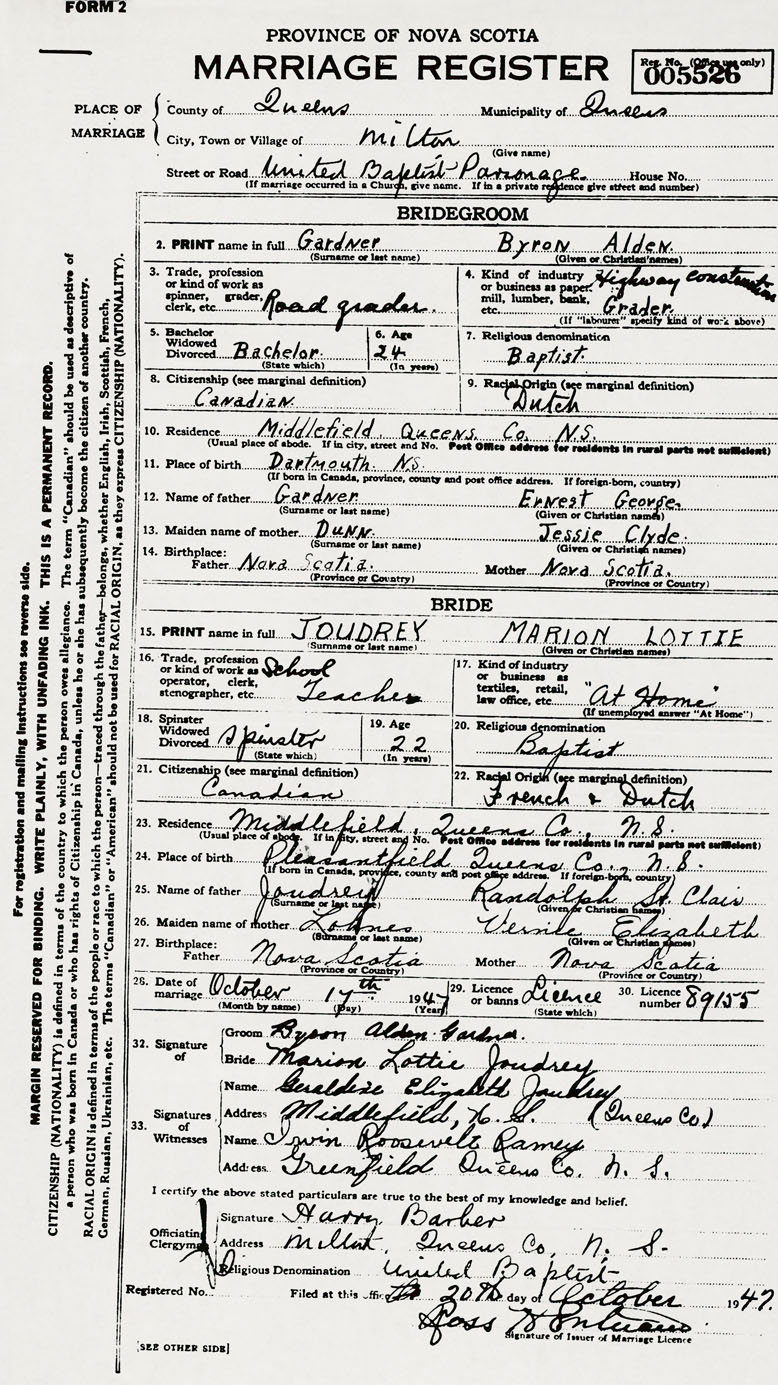 FORM 2
PROVINCE OF NOVA SCOTIA
MARRIAGE REGISTER
Reg. No. (Office use only)
005526
PLACE OF MARRIAGE
County of Queens Municipality of Queens
City, Town or Village of Milton
(Give name)
Street or Road United Baptist Parsonage House No.
(If marriage occurred in a Church, give name. If in a private residence give street and number)
BRIDEGROOM
2. PRINT name in full Gardner Byron Alden.
(Surname or last name) (Given or Christian names)
3. Trade, profession or kind of work as spinner, grader, clerk, etc. Road grader.
4. Kind of industry or business as paper mill, lumber, bank, etc. Highway construction Grader.
(If "labourer" specify kind of work above)
5. Bachelor Widowed Divorced Bachelor.
(State which)
6. Age 24
(In years)
7. Religious denomination Baptist.
8. Citizenship (see marginal definition) Canadian.
9. Racial Origin (see marginal definition) Dutch
10. Residence Middlefield Queens Co. N.S.
(Usual place of abode. If in city, street and No. Post Office address for residents in rural parts not sufficient)
11. Place of birth Dartmouth N.S.
(If born in Canada, province, county and post office address. If foreign-born, country)
12. Name of father Gardner Ernest George.
(Surname or last name) (Given or Christian names)
13. Maiden name of mother Dunn. Jessie Clyde.
(Surname or last name) (Given or Christian names)
14. Birthplace: Father Nova Scotia. Mother Nova Scotia.
(Province or Country) (Province or Country)
BRIDE
15. PRINT name in full JOUDREY MARION LOTTIE
(Surname or last name) (Given or Christian names)
16. Trade, profession or kind of work as operator, clerk, stenographer, etc. School Teacher
17. Kind of industry or business as textiles, retail, law office, etc. "At Home"
(If unemployed answer "At Home")
18. Spinster Widowed Divorced Spinster
(State which)
19. Age 22
(In years)
20. Religious denomination Baptist
21. Citizenship (see marginal definition) Canadian
22. Racial Origin (see marginal definition) French & Dutch
23. Residence Middlefield, Queens Co., N.S.
(Usual place of abode. If in city, street and No. Post Office address for residents in rural parts not sufficient)
24. Place of birth Pleasantfield Queens Co., N.S.
(If born in Canada, province, county and post office address. If foreign-born, country)
25. Name of father Joudrey Randolph St. Clair
(Surname or last name) (Given or Christian names)
26. Maiden name of mother Lohnes Vernie Elizabeth
(Surname or last name) (Given or Christian names)
27. Birthplace: Father Nova Scotia Mother Nova Scotia
(Province or Country) (Province or Country)
28. Date of marriage October 17th 1947
(Month by name) (Day) (Year)
29. Licence or banns Licence
(State which)
30. Licence number 89155
32. Signature of
Groom Byron Alden Gardner.
Bride Marion Lottie Joudrey
33. Signatures of Witnesses
Name Geraldine Elizabeth Joudrey
Address Middlefield, N.S. (Queens Co)
Name Irvin Roosevelt Ramey
Address Greenfield Queens Co. N. S.
I certify the above stated particulars are true to the best of my knowledge and belief.
Officiating Clergyman
Signature Harry Barber
Address Milton, Queens Co, N. S.
Religious Denomination United Baptist
Registered No.
Filed at this office 20th day of October 1947.
Ross
Signature of Issuer of Marriage Licence
[SEE OTHER SIDE]
For registration and mailing instructions see reverse side.
MARGIN RESERVED FOR BINDING. WRITE PLAINLY, WITH UNFADING INK. THIS IS A PERMANENT RECORD.
CITIZENSHIP (NATIONALITY) is defined in terms of the country to which the person owes allegiance. The term "Canadian" should be used as descriptive of
a person who was born in Canada or who has rights of Citizenship in Canada, unless he or she has subsequently become the citizen of another country.
RACIAL ORIGIN is defined in terms of the people or race to which the person—traced through the father—belongs, whether English, Irish, Scottish, French,
German, Russian, Ukrainian, etc. The terms "Canadian" or "American" should not be used for RACIAL ORIGIN, as they express CITIZENSHIP (NATIONALITY).